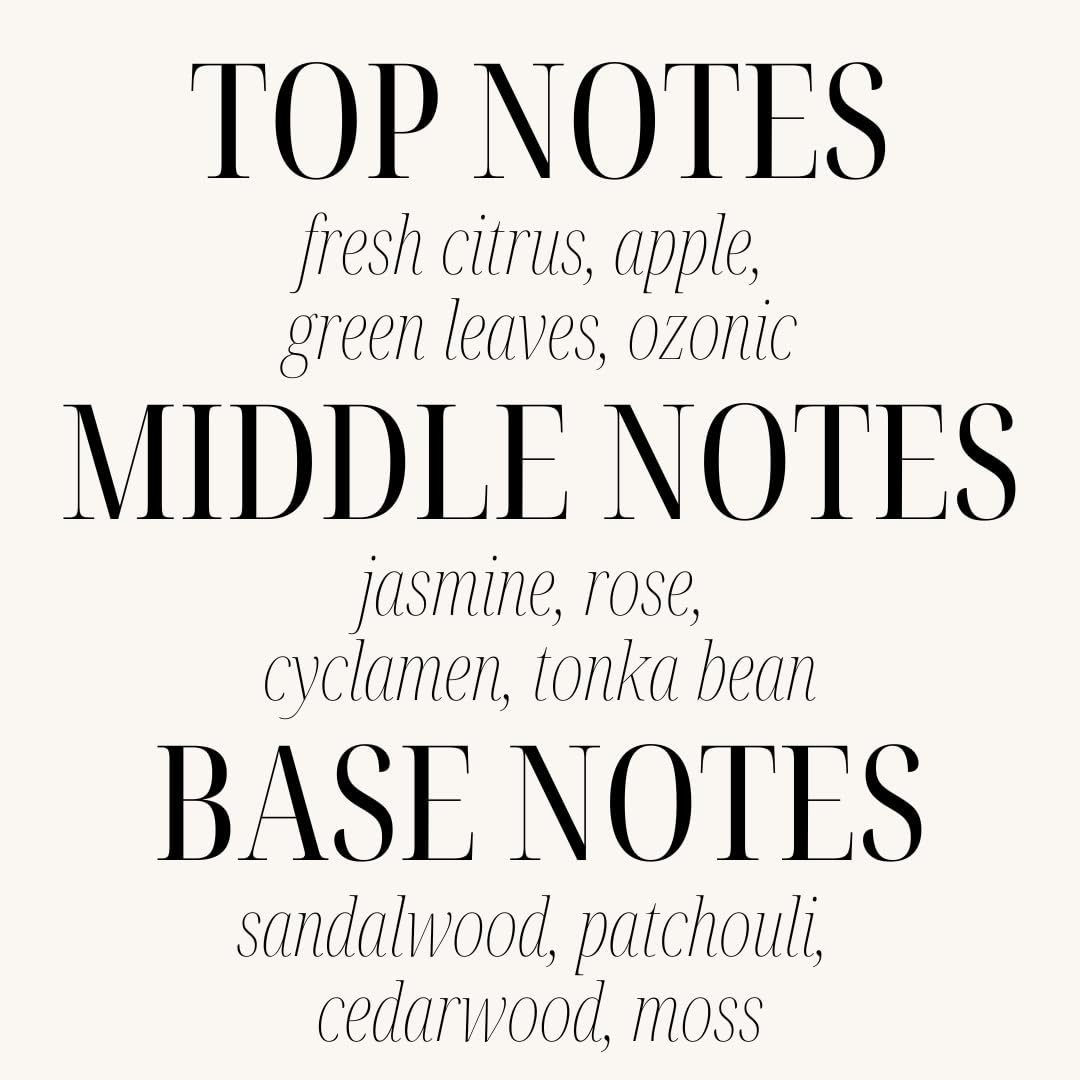 TOP NOTES
fresh citrus, apple,
green leaves, ozonic
MIDDLE NOTES
jasmine, rose,
cyclamen, tonka bean
BASE NOTES
sandalwood, patchouli,
cedarwood, moss